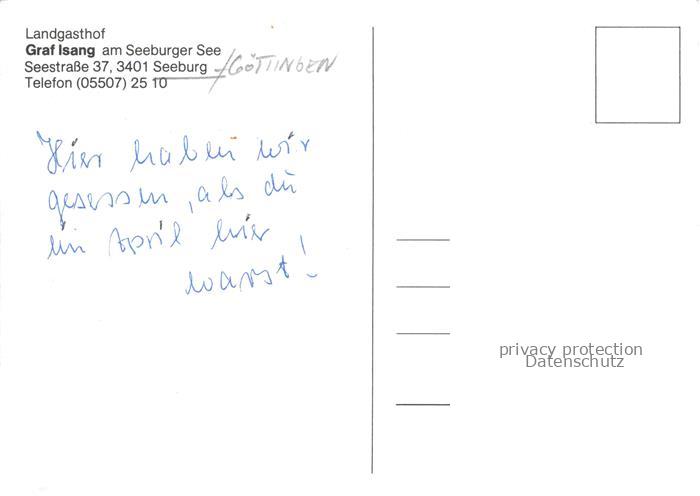 Landgasthof
Graf Isang am Seeburger See
Seestraße 37, 3401 Seeburg /GÖTTINGEN
Telefon (05507) 25 10
Hier haben wir
gesessen, als du
im April hier
warst!
privacy protection
Datenschutz